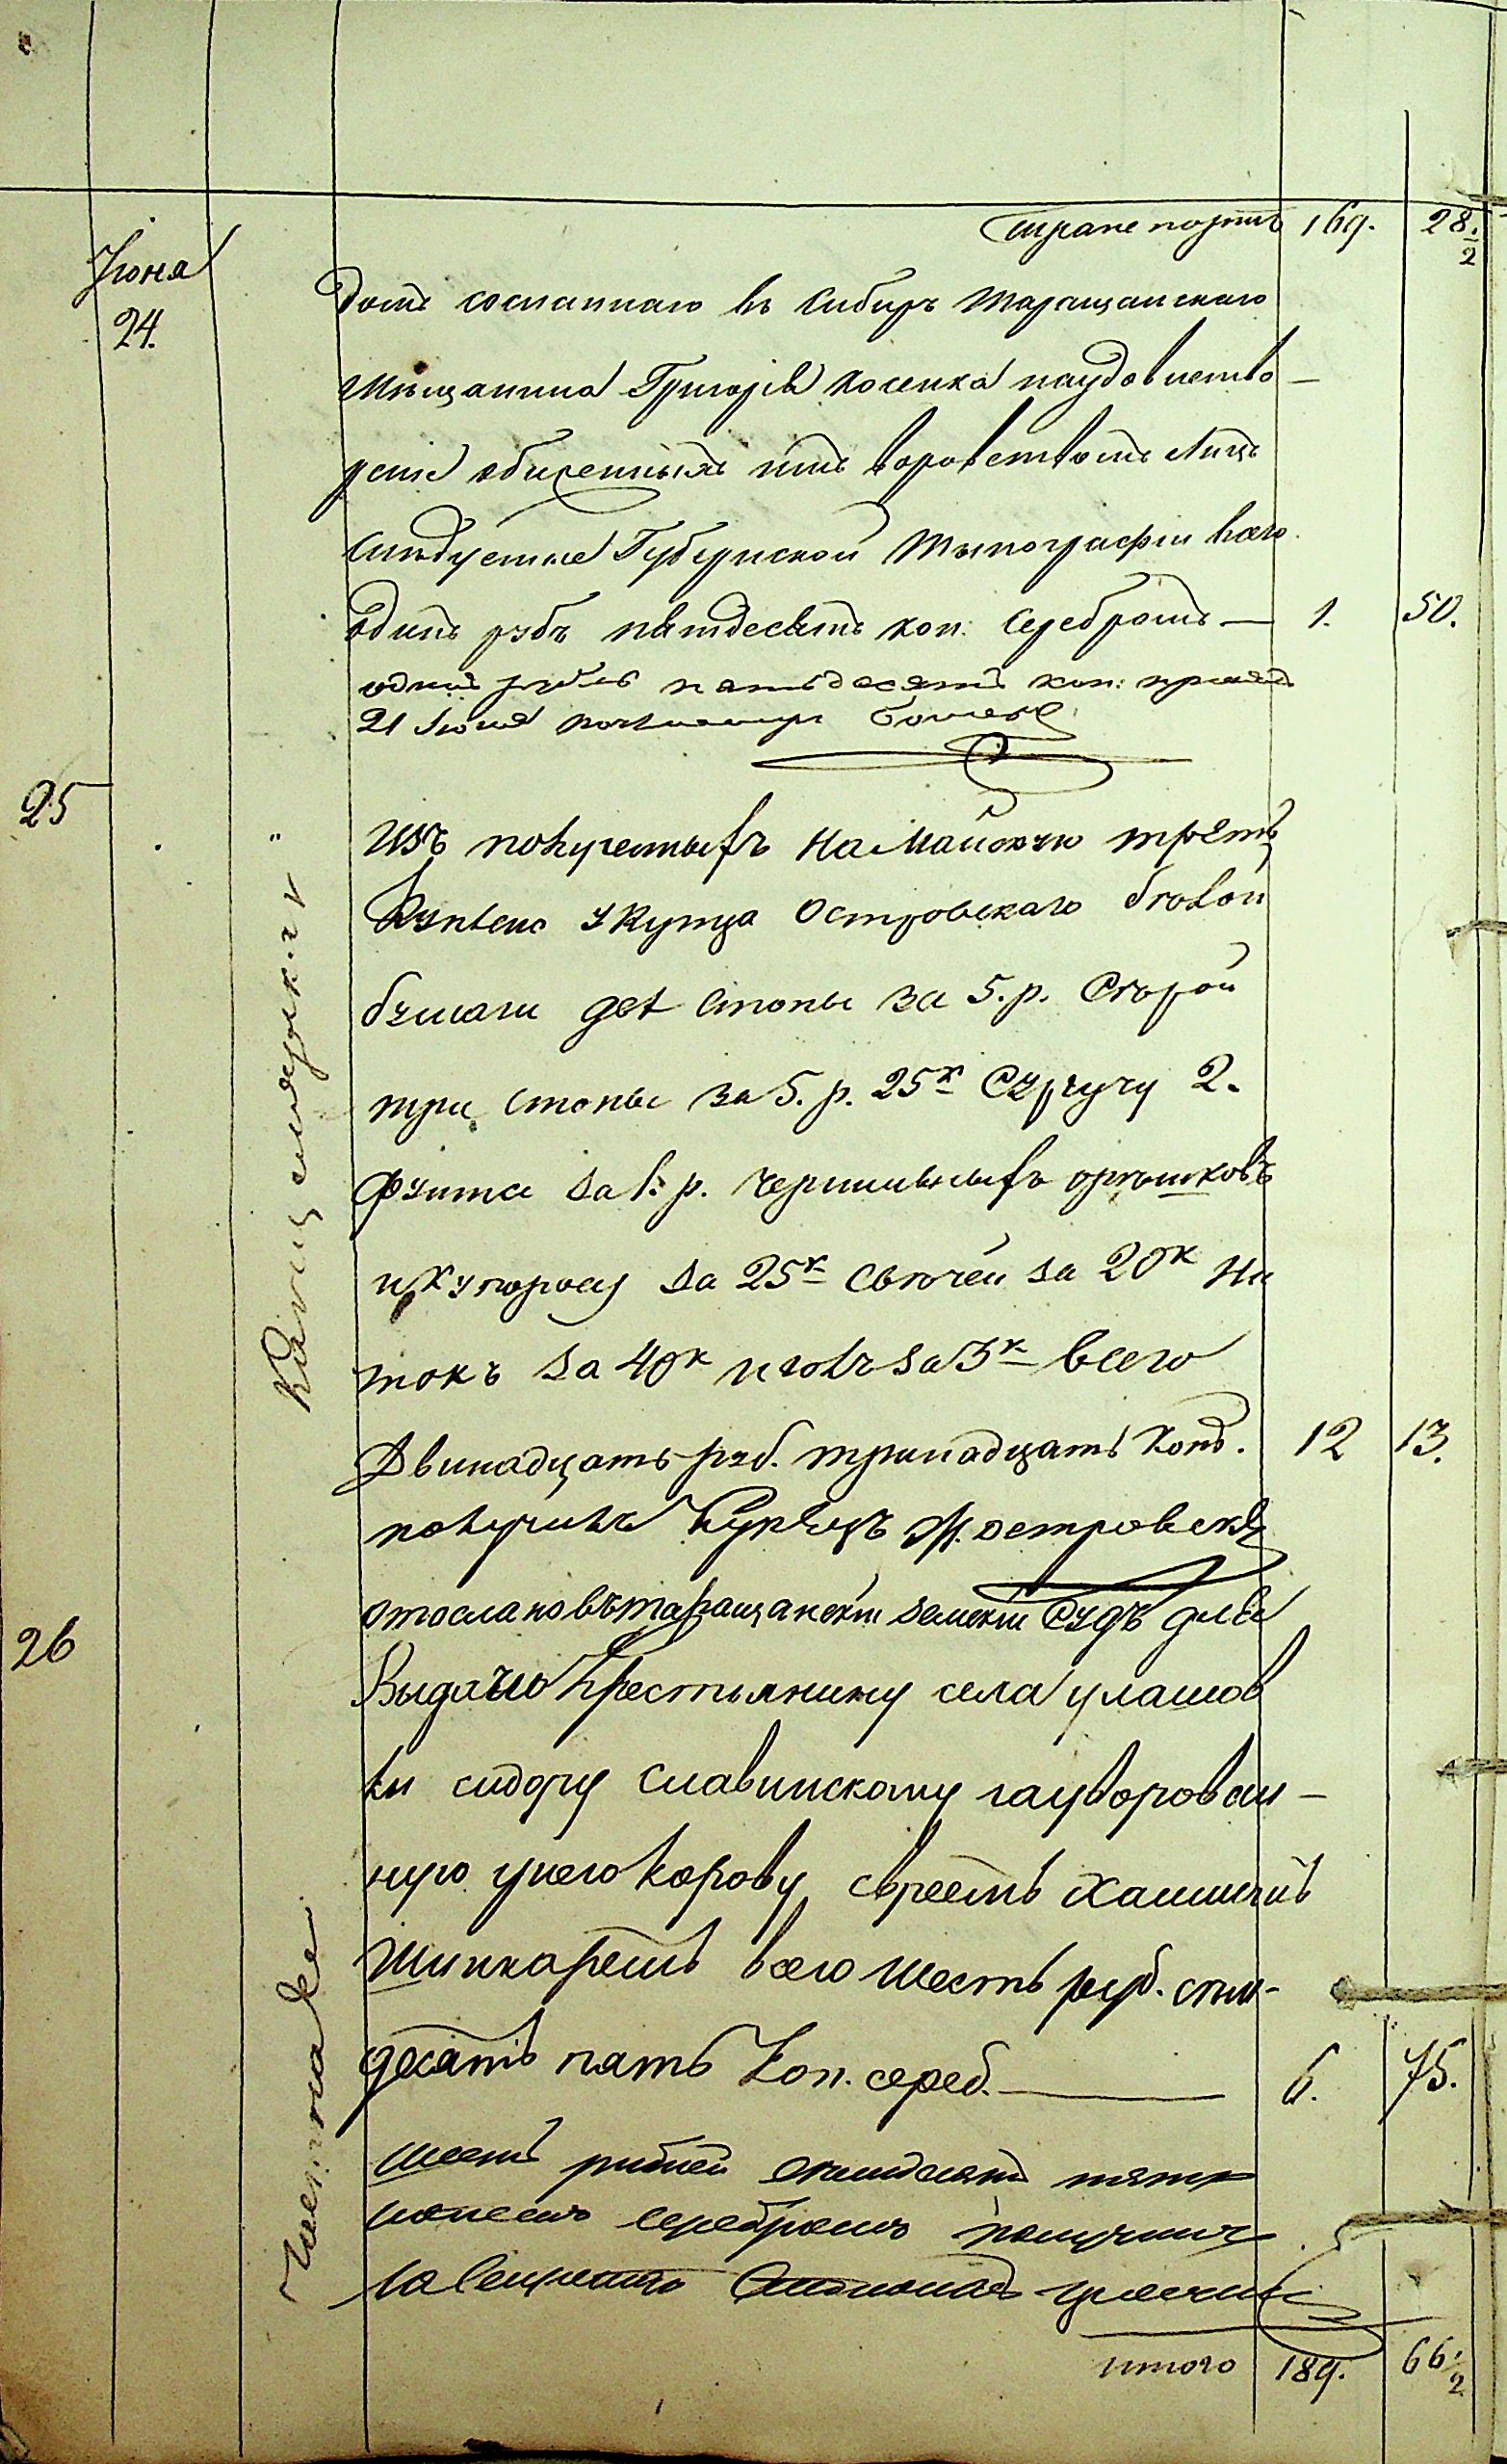 Транспортъ 169. 28 1/2
Іюня
24.
домъ сосланнаго въ Сибирь Таращанскаго
мѣщанина Григорія Косенка наудовлетво-
реніе обиженныхъ имъ воровствомъ лицъ
слѣдуемые Губернской Типографіи всего
одинъ руб. пятдесятъ коп. серебромъ — 1. 50.
одинъ рубль пятьдесятъ коп: принялъ
21 Іюня
25
Канцелярскихъ
Изъ полученныхъ на Майскую треть
куплено у Купца Островскаго бѣлой
бумаги двѣ стопы за 5. р. Сѣрой
три стопы за 5. р. 25 к Сургучу 2.
фунта за 1. р. чернильныхъ орѣшковъ
и купоросу за 25 к свѣчей за 20 к ни
токъ за 40 к иголъ за 3 к всего
Двинадцать руб. тринадцать коп. 12 13.
получилъ Купецъ М. Островскій
26
отослано въ таращанскій земскій Судъ для
выдачи Крестьянину села улашов
ки сидору Славинскому зауворован-
ную унего корову евреемъ Хаимомъ
Шинкаремъ всего шесть руб. семь-
десятъ пять коп. сереб. — 6. 75.
шесть рублей семьдесятъ пять
копеекъ серебромъ получилъ
за Секретаря
итого 189. 66 1/2